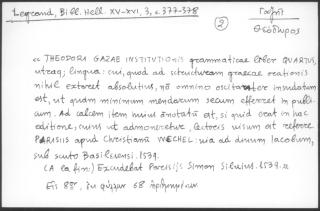 Legrand, Bibl. Hell. XV-XVI, 3, σ. 377-378
Γαζῆς
Θεόδωρος
2
« THEODORA GAZAE INSTITUTIONIS grammaticae liber QUARTUS,
utraq; lingua: cui, quod ad structuram graecae orationis
nihil extaret absolutius, nō omnino oscitanter insudatum
est, ut quam minimum mendarum secum efferret in publi-
cum. Ad calcem item huius ānotatū est, si quid erat in hac
editione, cuius ut admoneretur, lectoris uisum est referre
PARISIIS apud Christianū WECHEL: uia ad diuum Iacobum,
sub scuto Basiliensi. 1539.
(A la fin:) Excudebat Parisijs Simon Siluius. 1539. »
Εἰς 8º, ἐκ φύλλων 68